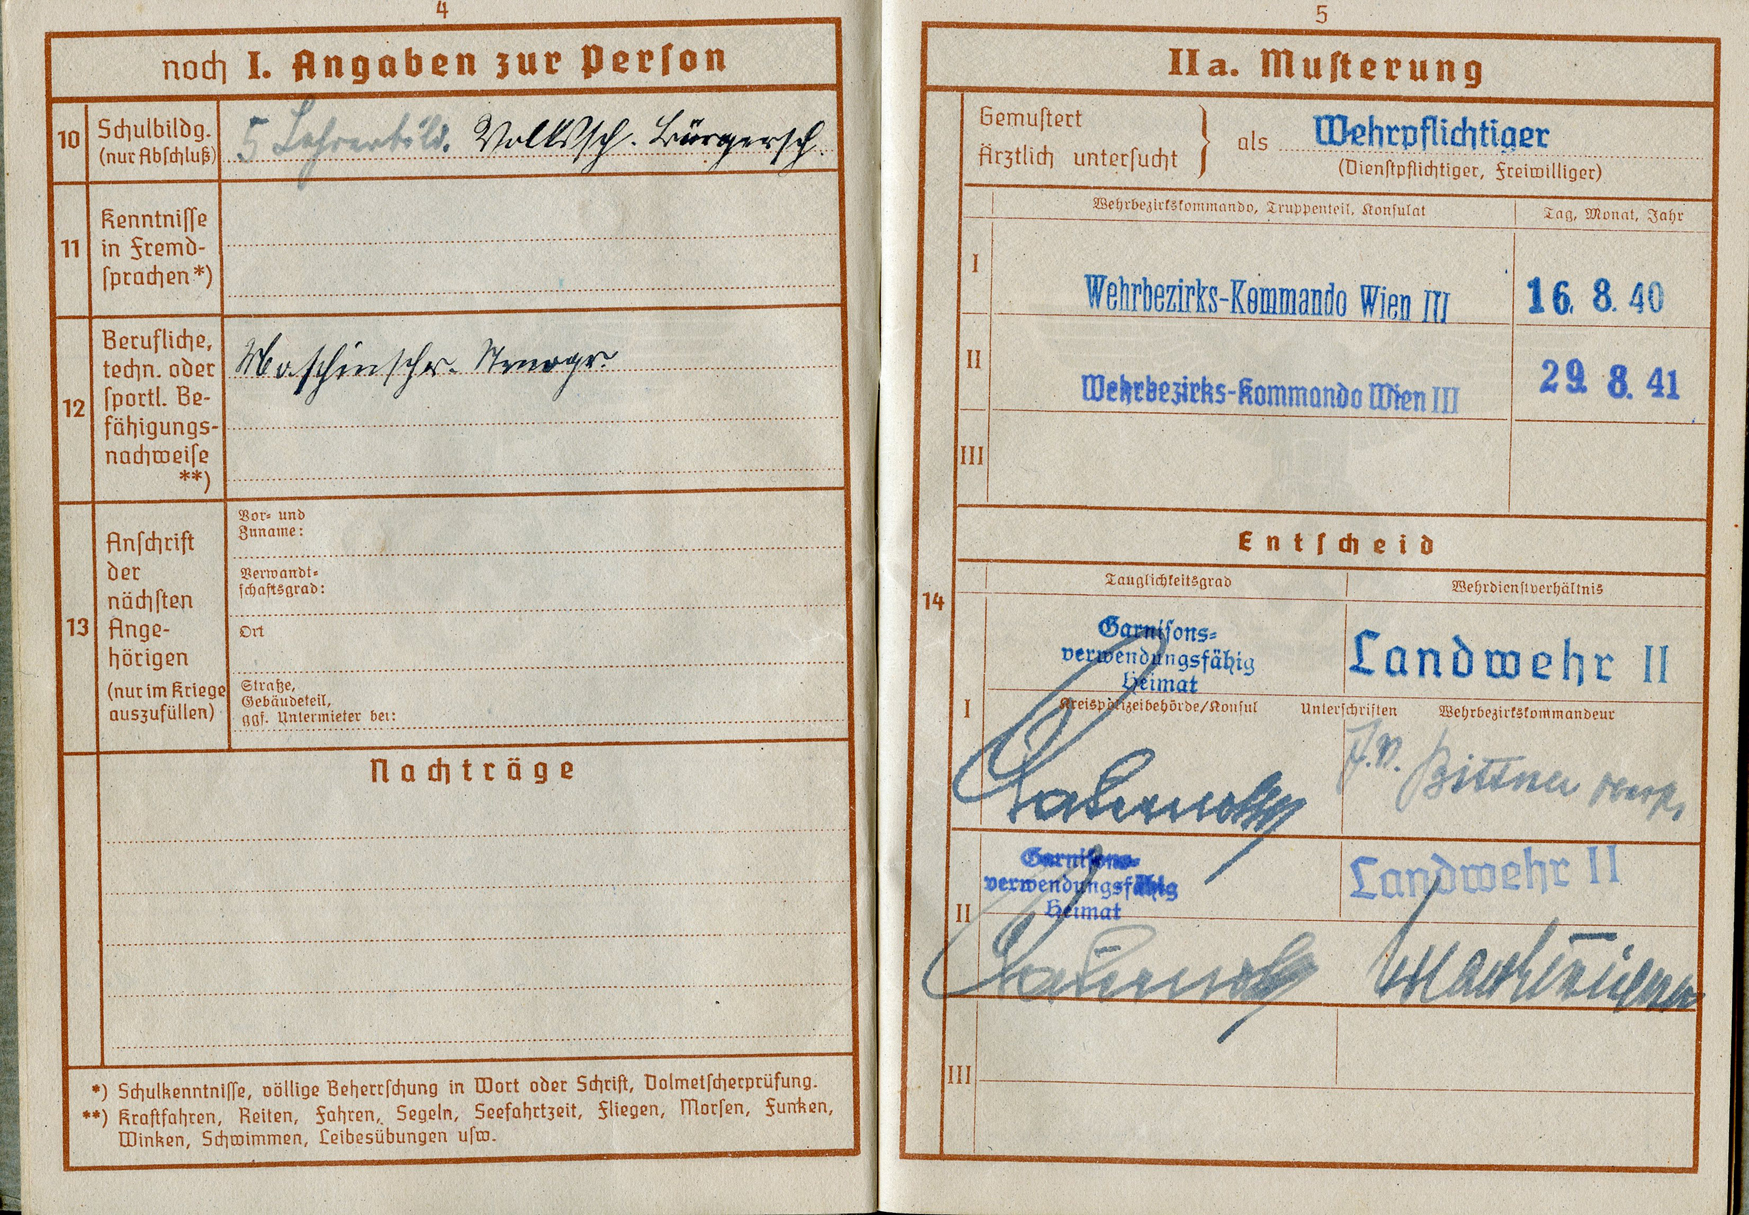 4
noch I. Angaben zur Person
10
Schulbildg.
(nur Abschluß)
5 Lehrerbild. Volkssch. Bürgersch.
11
Kenntnisse
in Fremd-
sprachen*)
12
Berufliche,
techn. oder
sportl. Be-
fähigungs-
nachweise
**)
Maschinschr. Stenogr.
13
Anschrift
der
nächsten
Ange-
hörigen
(nur im Kriege
auszufüllen)
Vor- und
Zuname:
Verwandt-
schaftsgrad:
Ort
Straße,
Gebäudeteil,
ggf. Untermieter bei:
Nachträge
*) Schulkenntnisse, völlige Beherrschung in Wort oder Schrift, Dolmetscherprüfung.
**) Kraftfahren, Reiten, Fahren, Segeln, Seefahrtzeit, Fliegen, Morsen, Funken,
Winken, Schwimmen, Leibesübungen usw.
5
IIa. Musterung
Gemustert
Ärztlich untersucht
als Wehrpflichtiger
(Dienstpflichtiger, Freiwilliger)
Wehrbezirkskommando, Truppenteil, Konsulat
Tag, Monat, Jahr
I
Wehrbezirks-Kommando Wien III
16. 8. 40
II
Wehrbezirks-Kommando Wien III
29. 8. 41
III
Entscheid
14
Tauglichkeitsgrad
Wehrdienstverhältnis
I
Garnisons-
verwendungsfähig
Heimat
Landwehr II
Kreispolizeibehörde/Konsul
Unterschriften
Wehrbezirkskommandeur
J.V. Bittner
II
Garnisons-
verwendungsfähig
Heimat
Landwehr II
III